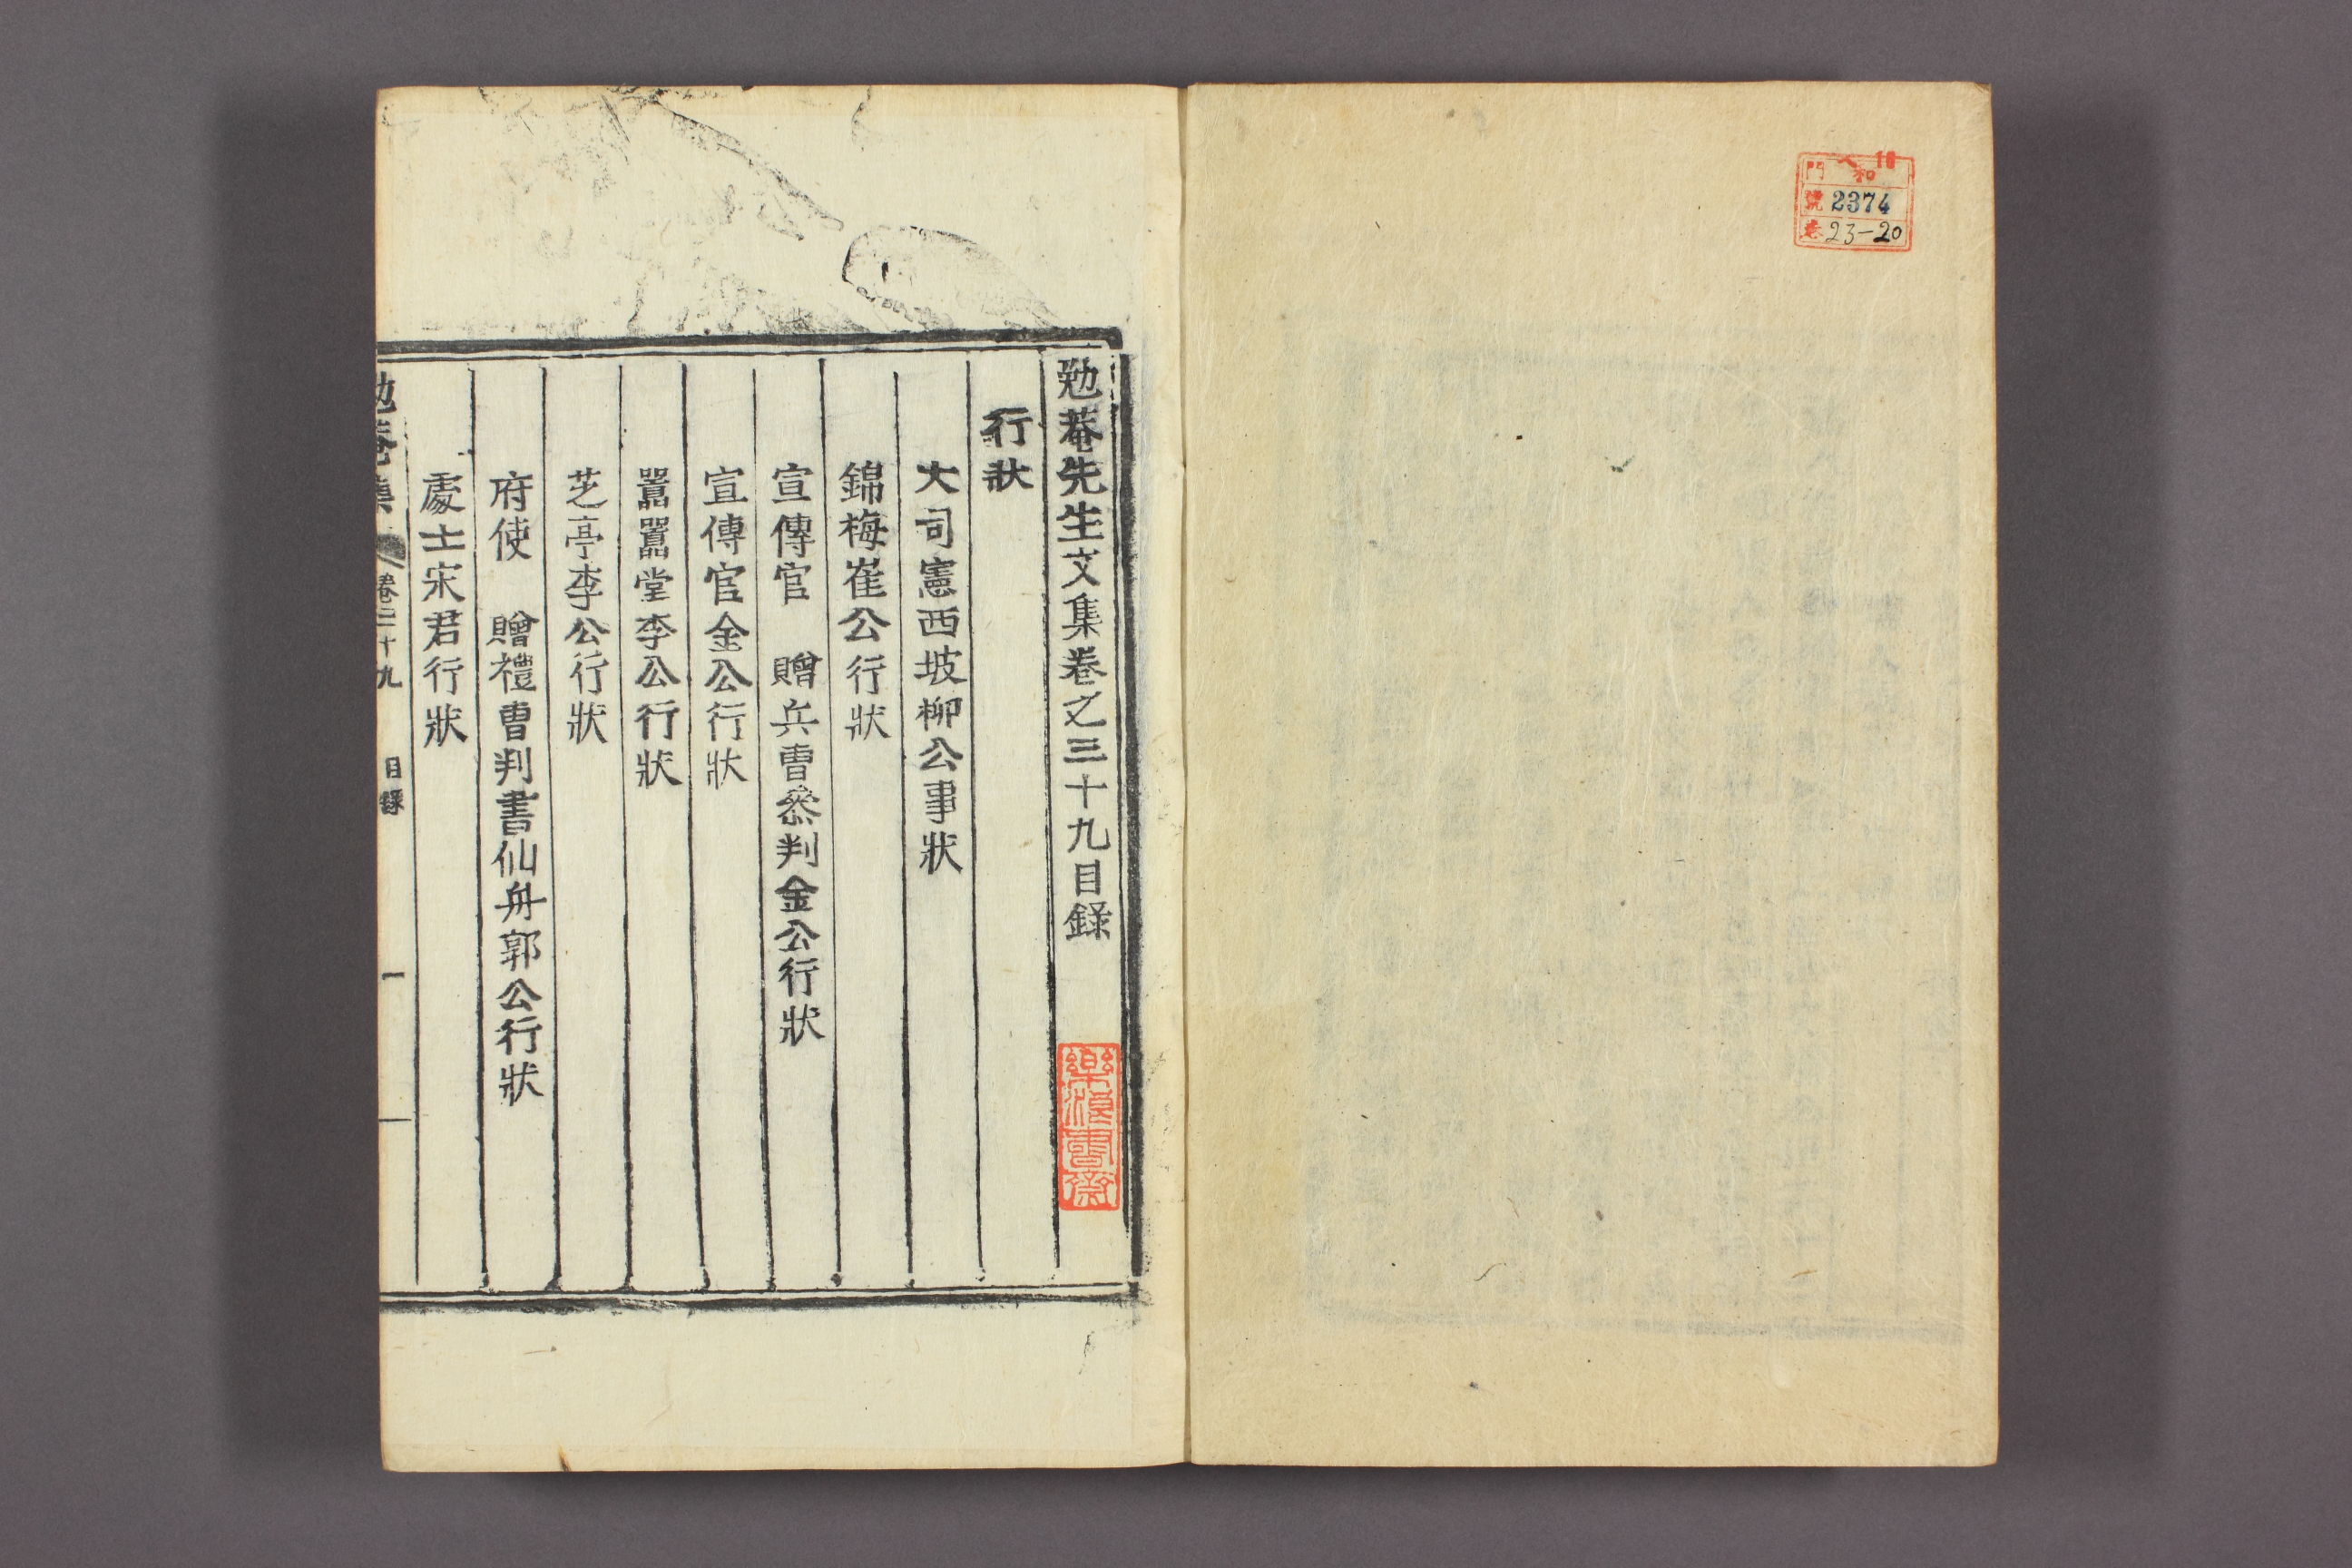 門 ヘ和 10
號 2374
卷 23-20
勉菴先生文集卷之三十九目錄
樂浪書齋
行狀
大司憲西坡柳公事狀
錦梅崔公行狀
宣傳官 贈兵曹叅判金公行狀
宣傳官金公行狀
囂囂堂李公行狀
芝亭李公行狀
府使 贈禮曹判書仙舟郭公行狀
處士宋君行狀
勉菴集 卷三十九 目錄 一